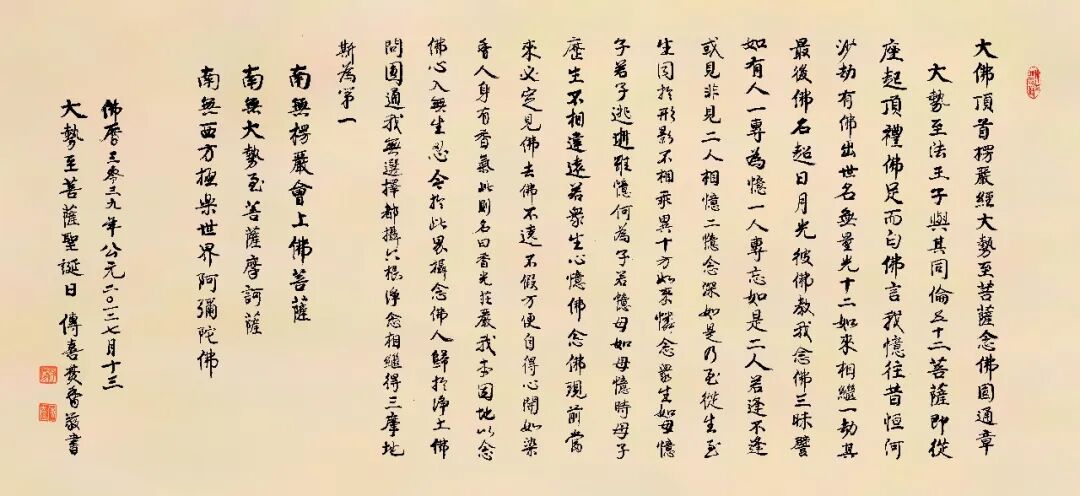 大佛頂首楞嚴經大勢至菩薩念佛圓通章
大勢至法王子與其同倫五十二菩薩即從
座起頂禮佛足而白佛言我憶往昔恒河
沙劫有佛出世名無量光十二如來相繼一劫其
最後佛名超日月光彼佛教我念佛三昧譬
如有人一專為憶一人專忘如是二人若逢不逢
或見非見二人相憶二憶念深如是乃至從生至
生同於形影不相乖異十方如來憐念眾生如母憶
子若子逃逝雖憶何為子若憶母如母憶時母子
歷生不相違遠若眾生心憶佛念佛現前當
來必定見佛去佛不遠不假方便自得心開如染
香人身有香氣此則名曰香光莊嚴我本因地以念
佛心入無生忍今於此界攝念佛人歸於淨土佛
問圓通我無選擇都攝六根淨念相繼得三摩地
斯為第一
南無楞嚴會上佛菩薩
南無大勢至菩薩摩訶薩
南無西方極樂世界阿彌陀佛
佛曆三零三九年公元二〇一二七月十三
大勢至菩薩聖誕日 傳喜焚香敬書